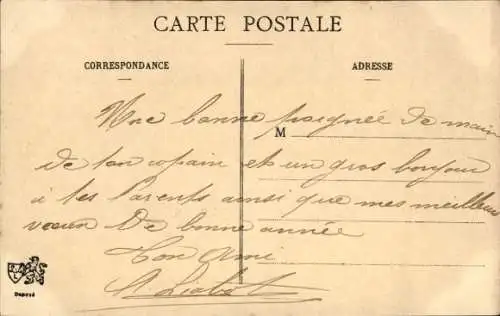 CARTE POSTALE
CORRESPONDANCE
ADRESSE
Une bonne poignée de main
M
de ton copain et un gros bonjour
à tes Parents ainsi que mes meilleurs
voeux de bonne année
Ton Ami
Deposé